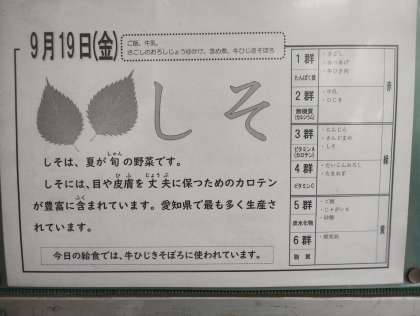 9月19日(金)
ご飯、牛乳、
さごしのおろしじょうゆかけ、含め煮、牛ひじきそぼろ
しそ
しそは、夏が旬の野菜です。
しそには、目や皮膚を丈夫に保つためのカロテン
が豊富に含まれています。愛知県で最も多く生産さ
れています。
今日の給食では、牛ひじきそぼろに使われています。
1群
たんぱく質
・さごし
・牛ひき肉
赤
2群
無機質
(カルシウム)
・牛乳
・ひじき
3群
ビタミンA
(カロテン)
・にんじん
・さんどまめ
・しそ
緑
4群
ビタミンC
・だいこんおろし
・たまねぎ
5群
炭水化物
・ご飯
・じゃがいも
・砂糖
黄
6群
脂質